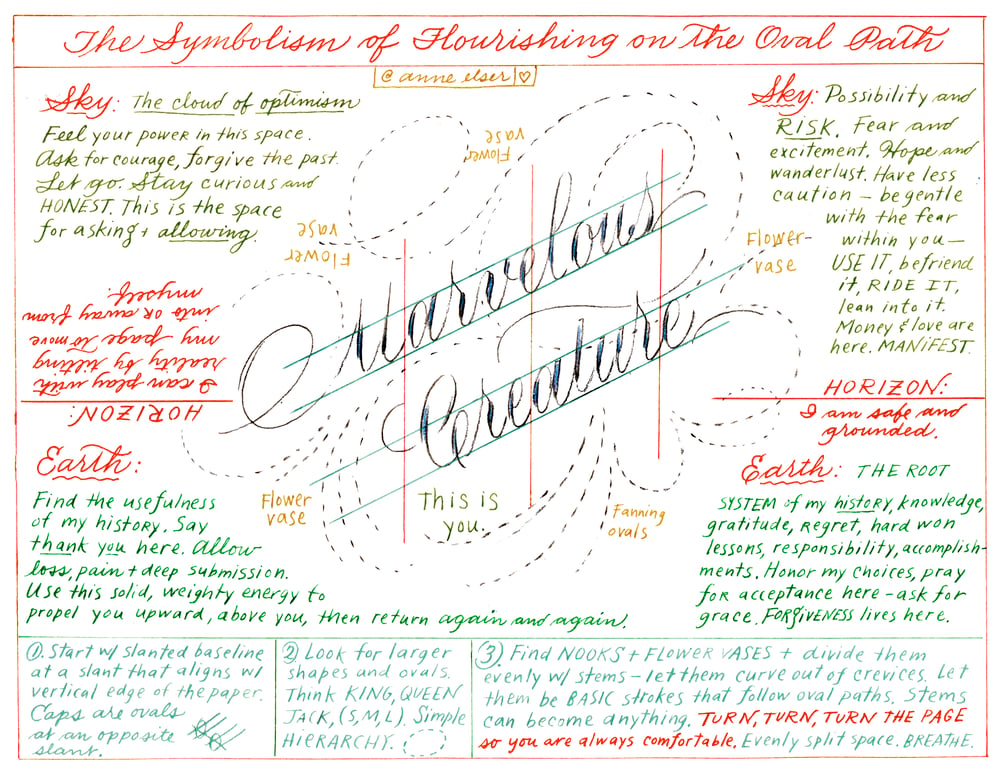 The Symbolism of Flourishing on the Oval Path
@anne elser ♡
Sky: The cloud of optimism
Feel your power in this space.
Ask for courage, forgive the past.
Let go. Stay curious and
HONEST. This is the space
for asking + allowing.
Sky: Possibility and
RISK. Fear and
excitement. Hope and
wanderlust. Have less
caution – be gentle
with the fear
within you—
USE IT, befriend
it, RIDE IT,
lean into it.
Money & love are
here. MANIFEST.
Flower
vase
Flower
vase
Flower-
vase
Marvelous
Creature
HORIZON:
I can play with
reality by tilting
my page to move
into OR away from
myself.
HORIZON:
I am safe and
grounded.
Earth:
Find the usefulness
of my history. Say
thank you here. Allow
loss, pain + deep submission.
Use this solid, weighty energy to
propel you upward, above you, then return again and again.
Flower
vase
This is
you.
Fanning
ovals
Earth: THE ROOT
SYSTEM of my history, knowledge,
gratitude, Regret, hard won
lessons, responsibility, accomplish-
ments. Honor my choices, pray
for acceptance here – ask for
grace. FORGIVENESS lives here.
① Start w/ slanted baseline
at a slant that aligns w/
vertical edge of the paper.
Caps are ovals
at an opposite
slant.
② Look for larger
shapes and ovals.
Think KING, QUEEN
JACK, (S, M, L). Simple
HiERARCHY.
③ Find NOOKS + FLOWER VASES + divide them
evenly w/ stems – let them curve out of crevices. Let
them be BASIC strokes that follow oval paths. Stems
can become anything. TURN, TURN, TURN THE PAGE
so you are always comfortable. Evenly split space. BREATHE.